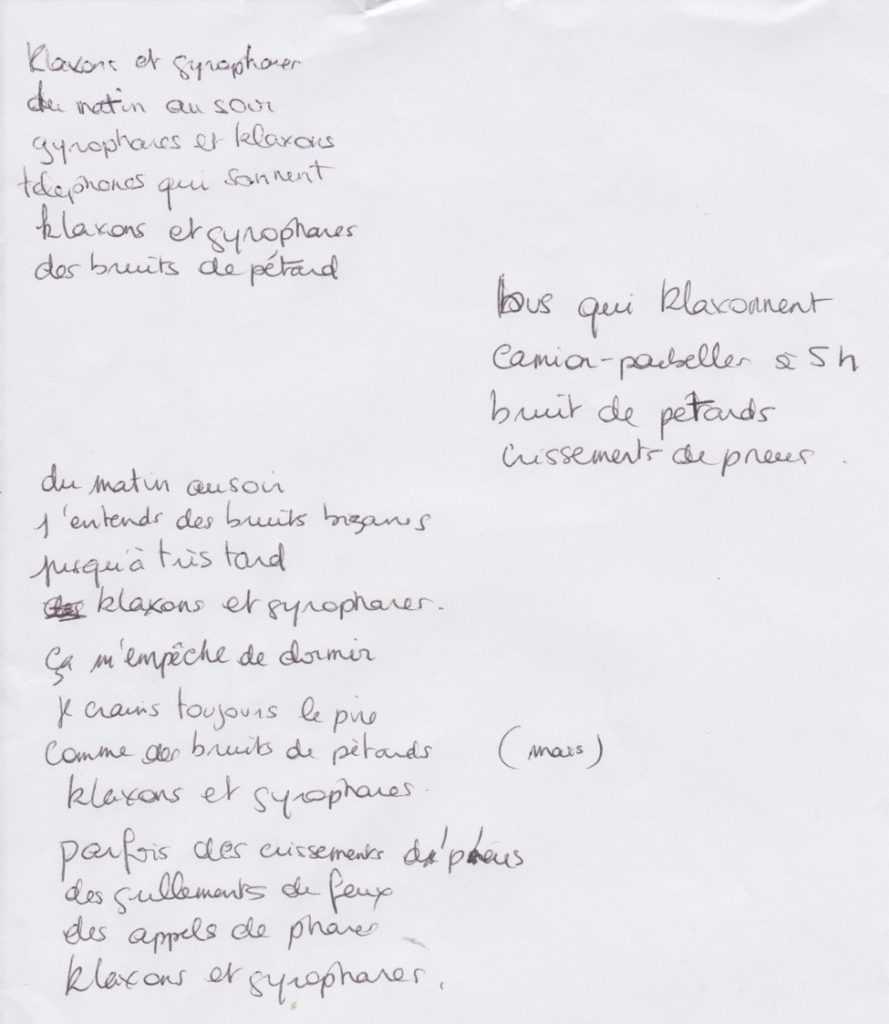 Klaxons et gyrophares
du matin au soir
gyrophares et klaxons
telephones qui sonnent
klaxons et gyrophares
des bruits de pétard
bus qui klaxonnent
camion-poubelles à 5h
bruit de petards
crissements de pneus.
du matin au soir
j'entends des bruits bizarres
jusqu'à très tard
klaxons et gyrophares.
ça m'empêche de dormir
je crains toujours le pire
comme des bruits de pètards (mais)
klaxons et gyrophares.
parfois des crissements de pneus
des de feux
des appels de phares
klaxons et gyrophares.